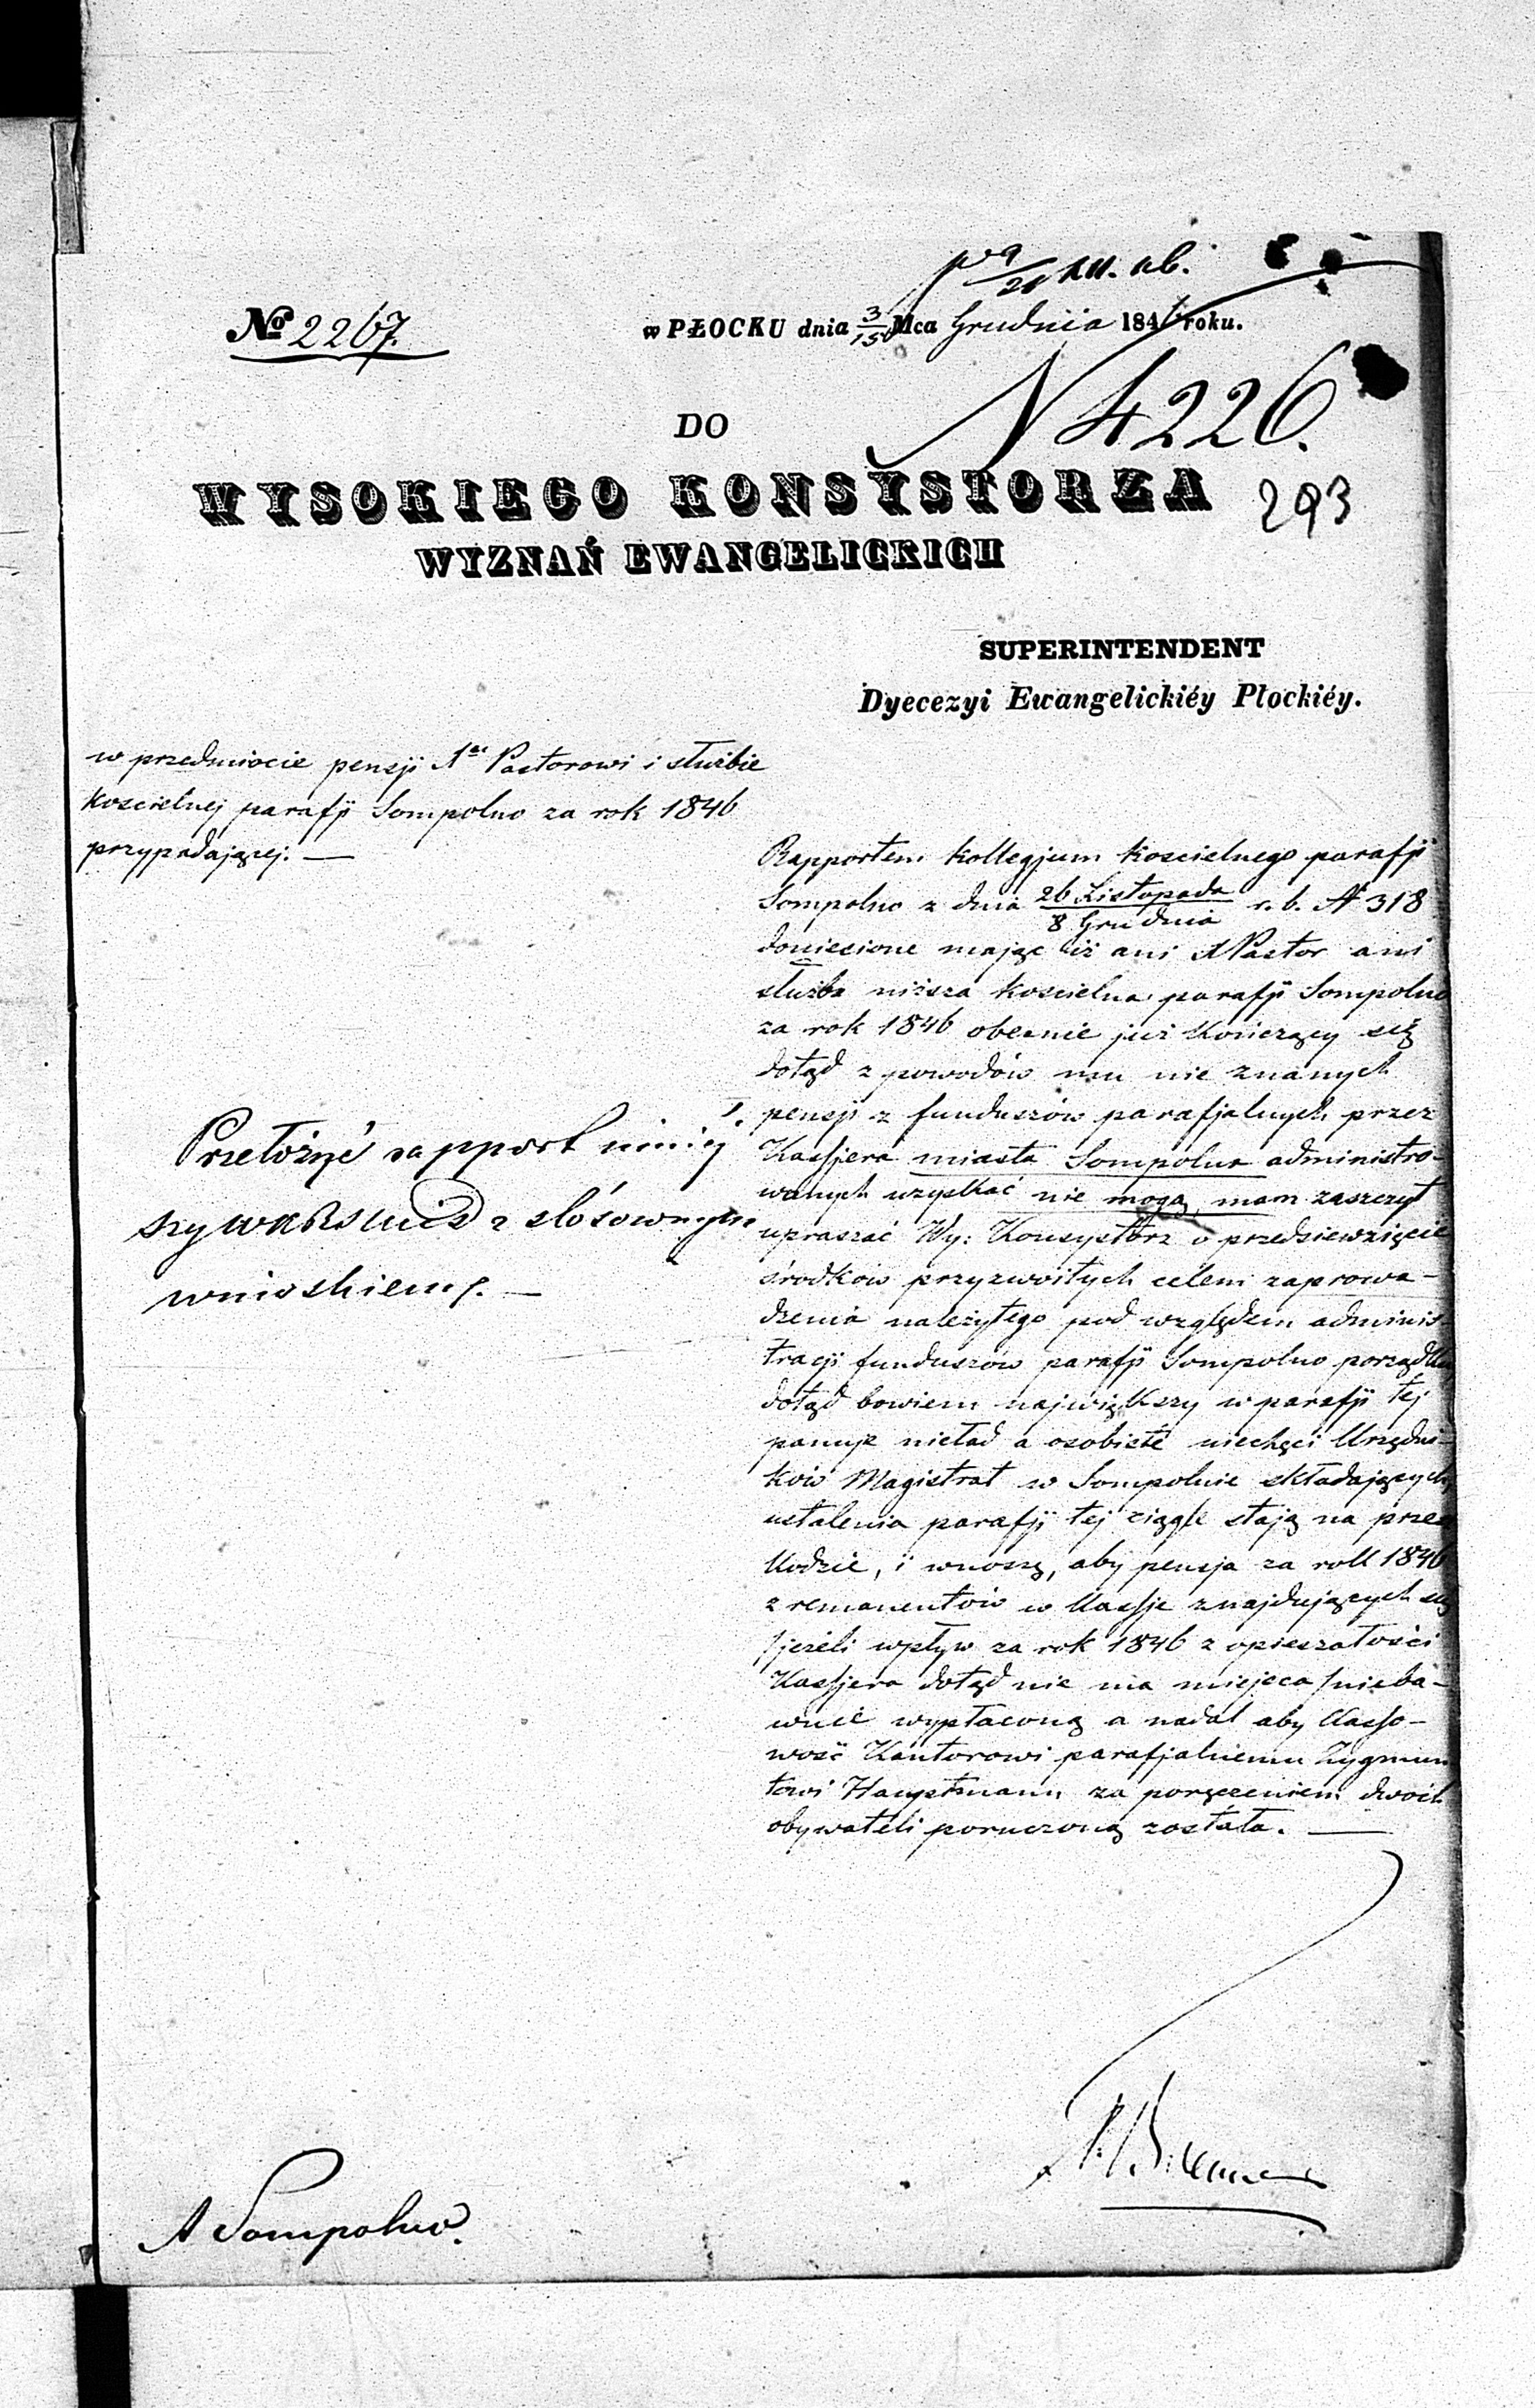 № 2267.
w PŁOCKU dnia 3/15 Mca Grudnia 1846 roku.
N 4226.
DO
WYSOKIEGO KONSYSTORZA
293
WYZNAŃ EWANGELICKICH
SUPERINTENDENT
Dyecezyi Ewangelickiéy Płockiéy.
w przedmiocie pensji Pastorowi i służbie
Koscielnej parafji Sompolno za rok 1846
przypadającej. —
Rapportem Kollegjum Koscielnego parafji
Sompolno z dnia 26 Listopada / 8 Grudnia r. b. N 318
doniesione mając iż ani Pastor ani
służba niższa Koscielna parafji Sompolno
za rok 1846 obecnie już Kończący się
dotąd z powodów mu nie znanych
pensji z funduszów parafjalnych przez
Kassjera miasta Sompolna administro-
wanych uzyskać nie mogą, mam zaszczyt
upraszać Wy: Konsystorz o przedsiewzięcie
środków przyzwoitych celem zaprowa-
dzenia należytego pod względem adminis-
tracji funduszów parafji Sompolno porządku
dotąd bowiem największy w parafji tej
panuje nieład a osobiste niechęci Urzędni-
ków Magistrat w Sompolnie składających
ustalenia parafji tej ciągle stają na przesz
kodzie, i wnoszę, aby pensja za rok 1846
z remanentów w Kassje znajdujących się
/jeżeli wpływ za rok 1846 z opieszałości
Kassjera dotąd nie ma miejsca/ nieba-
wnie wypłaconą a nadal aby Kasso-
wość Kantorowi parafjalnemu Zygmun
towi Hauptmann za poręczeniem dwoch
obywateli poruczoną została. —
Przełożyć rapport niniej
szy z stósownym
wnioskiem. —
A Sompolno.